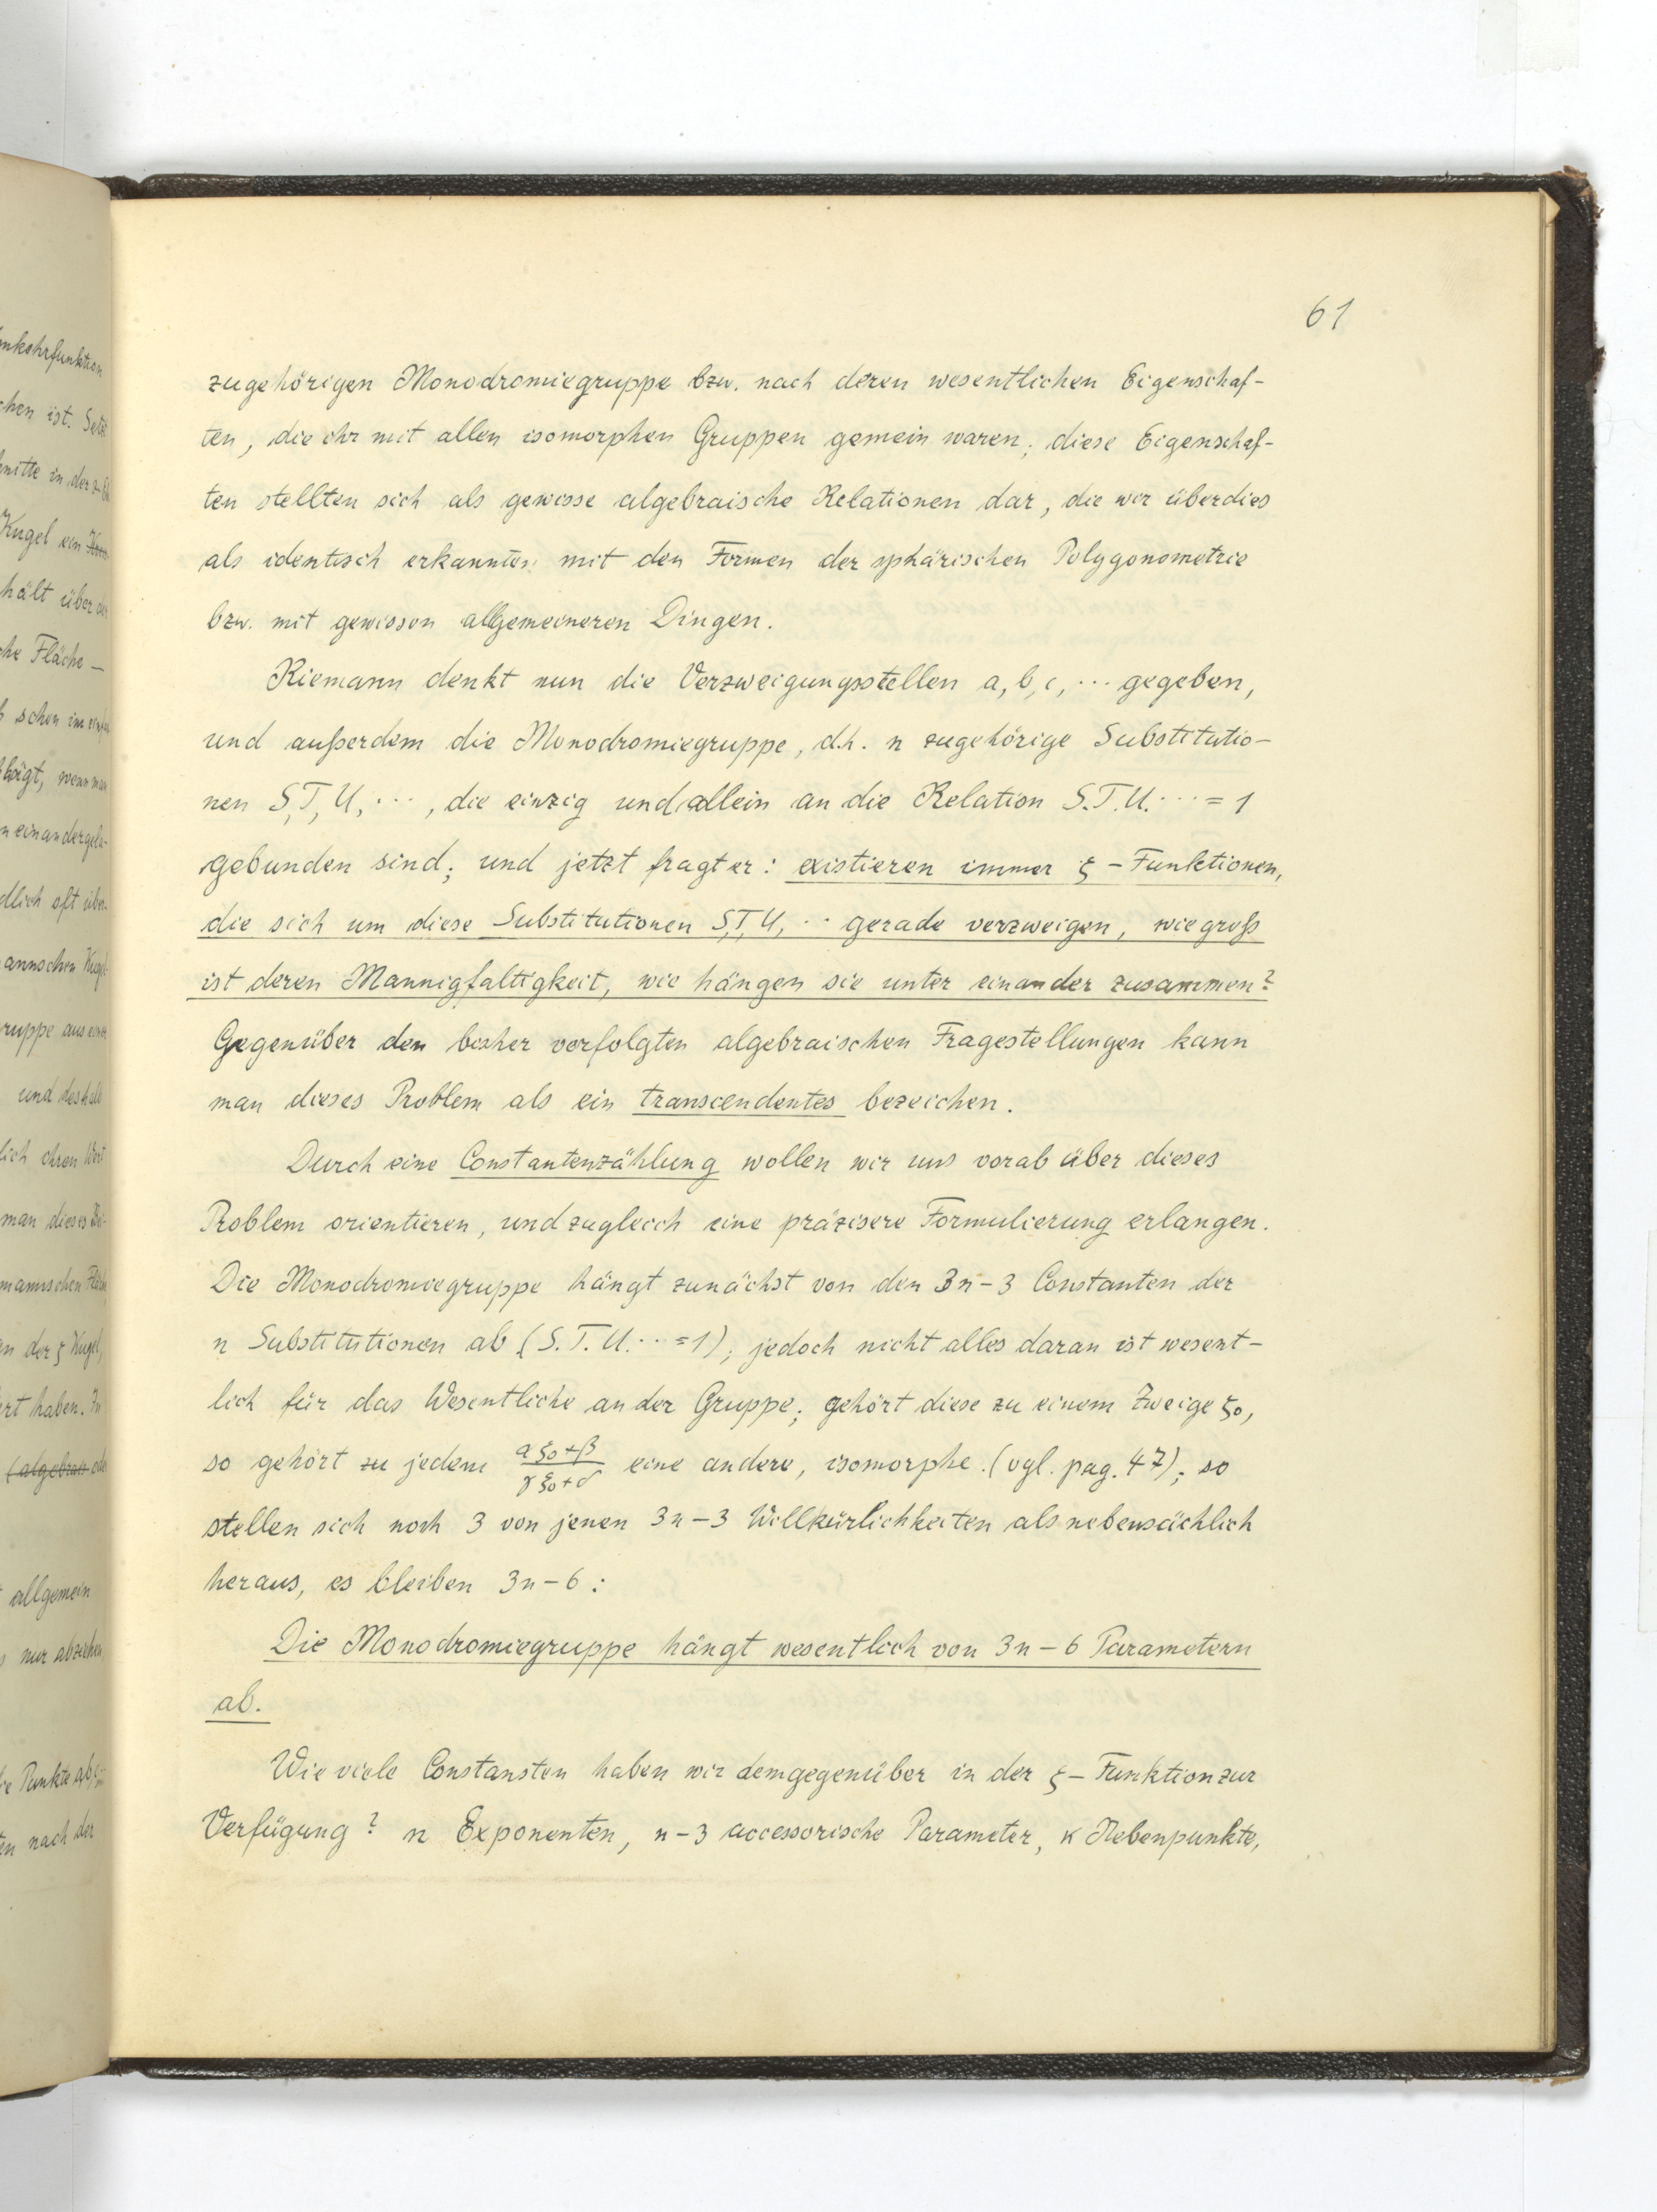 61
zugehörigen Monodromiegruppe bzw. nach deren wesentlichen Eigenschaf-
ten, die ihr mit allen isomorphen Gruppen gemein waren; diese Eigenschaf-
ten stellten sich als gewisse algebraische Relationen dar, die wir überdies
als identisch erkannten mit den Formen der sphärischen Polygonometrie
bzw. mit gewissen allgemeineren Dingen.
Riemann denkt nun die Verzweigungsstellen a, b, c, ··· gegeben,
und außerdem die Monodromiegruppe, d.h. n zugehörige Substitutio-
nen S, T, U, ···, die einzig und allein an die Relation S.T.U.··· = 1
gebunden sind; und jetzt fragt er: existieren immer ζ-Funktionen,
die sich um diese Substitutionen S, T, U, ·· gerade verzweigen, wie groß
ist deren Mannigfaltigkeit, wie hängen sie unter einander zusammen?
Gegenüber den bisher verfolgten algebraischen Fragestellungen kann
man dieses Problem als ein transcendentes bezeichen.
Durch eine Constantenzählung wollen wir uns vorab über dieses
Problem orientieren, und zugleich eine präzisere Formulierung erlangen.
Die Monodromiegruppe hängt zunächst von den 3n-3 Constanten der
n Substitutionen ab (S.T.U.·· = 1); jedoch nicht alles daran ist wesent-
lich für das Wesentliche an der Gruppe; gehört diese zu einem Zweige ζ₀,
so gehört zu jedem (αζ₀+β)/(γζ₀+δ) eine andere, isomorphe. (vgl. pag. 47); so
stellen sich noch 3 von jenen 3n-3 Willkürlichkeiten als nebensächlich
heraus, es bleiben 3n-6:
Die Monodromiegruppe hängt wesentlich von 3n-6 Parametern
ab.
Wie viele Constansten haben wir demgegenüber in der ζ-Funktion zur
Verfügung? n Exponenten, n-3 accessorische Parameter, κ Nebenpunkte,